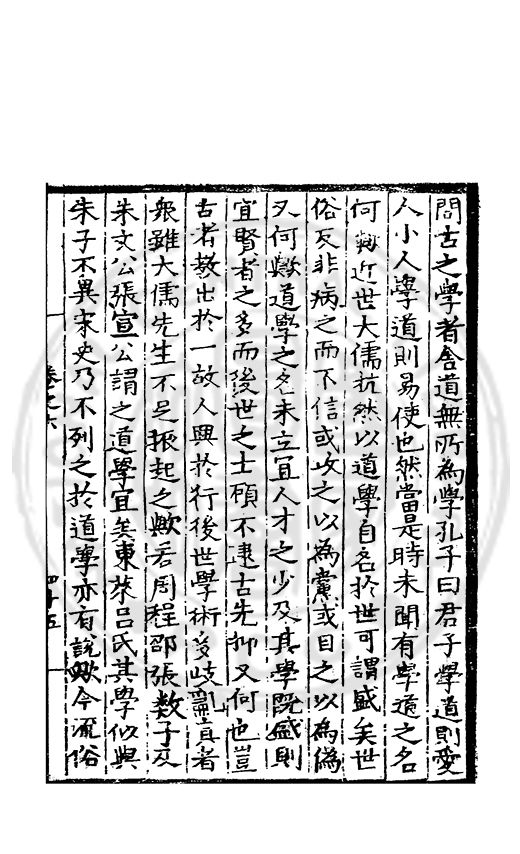 問古之學者舍道無所為學孔子曰君子學道則愛
人小人學道則易使也然當是時未聞有學道之名
何歟近世大儒抗然以道學自名於世可謂盛矣世
俗反非病之而不信或攻之以為黨或目之以為偽
又何歟道學之名未立宜人才之少及其學既盛則
宜賢者之多而後世之士顧不逮古先抑又何也豈
古者教出於一故人興於行後世學術多歧亂真者
衆雖大儒先生不足振起之歟若周程邵張數子及
朱文公張宣公謂之道學宜矣東萊呂氏其學似與
朱子不異宋史乃不列之於道學亦有說歟今流俗
卷之六
四十五